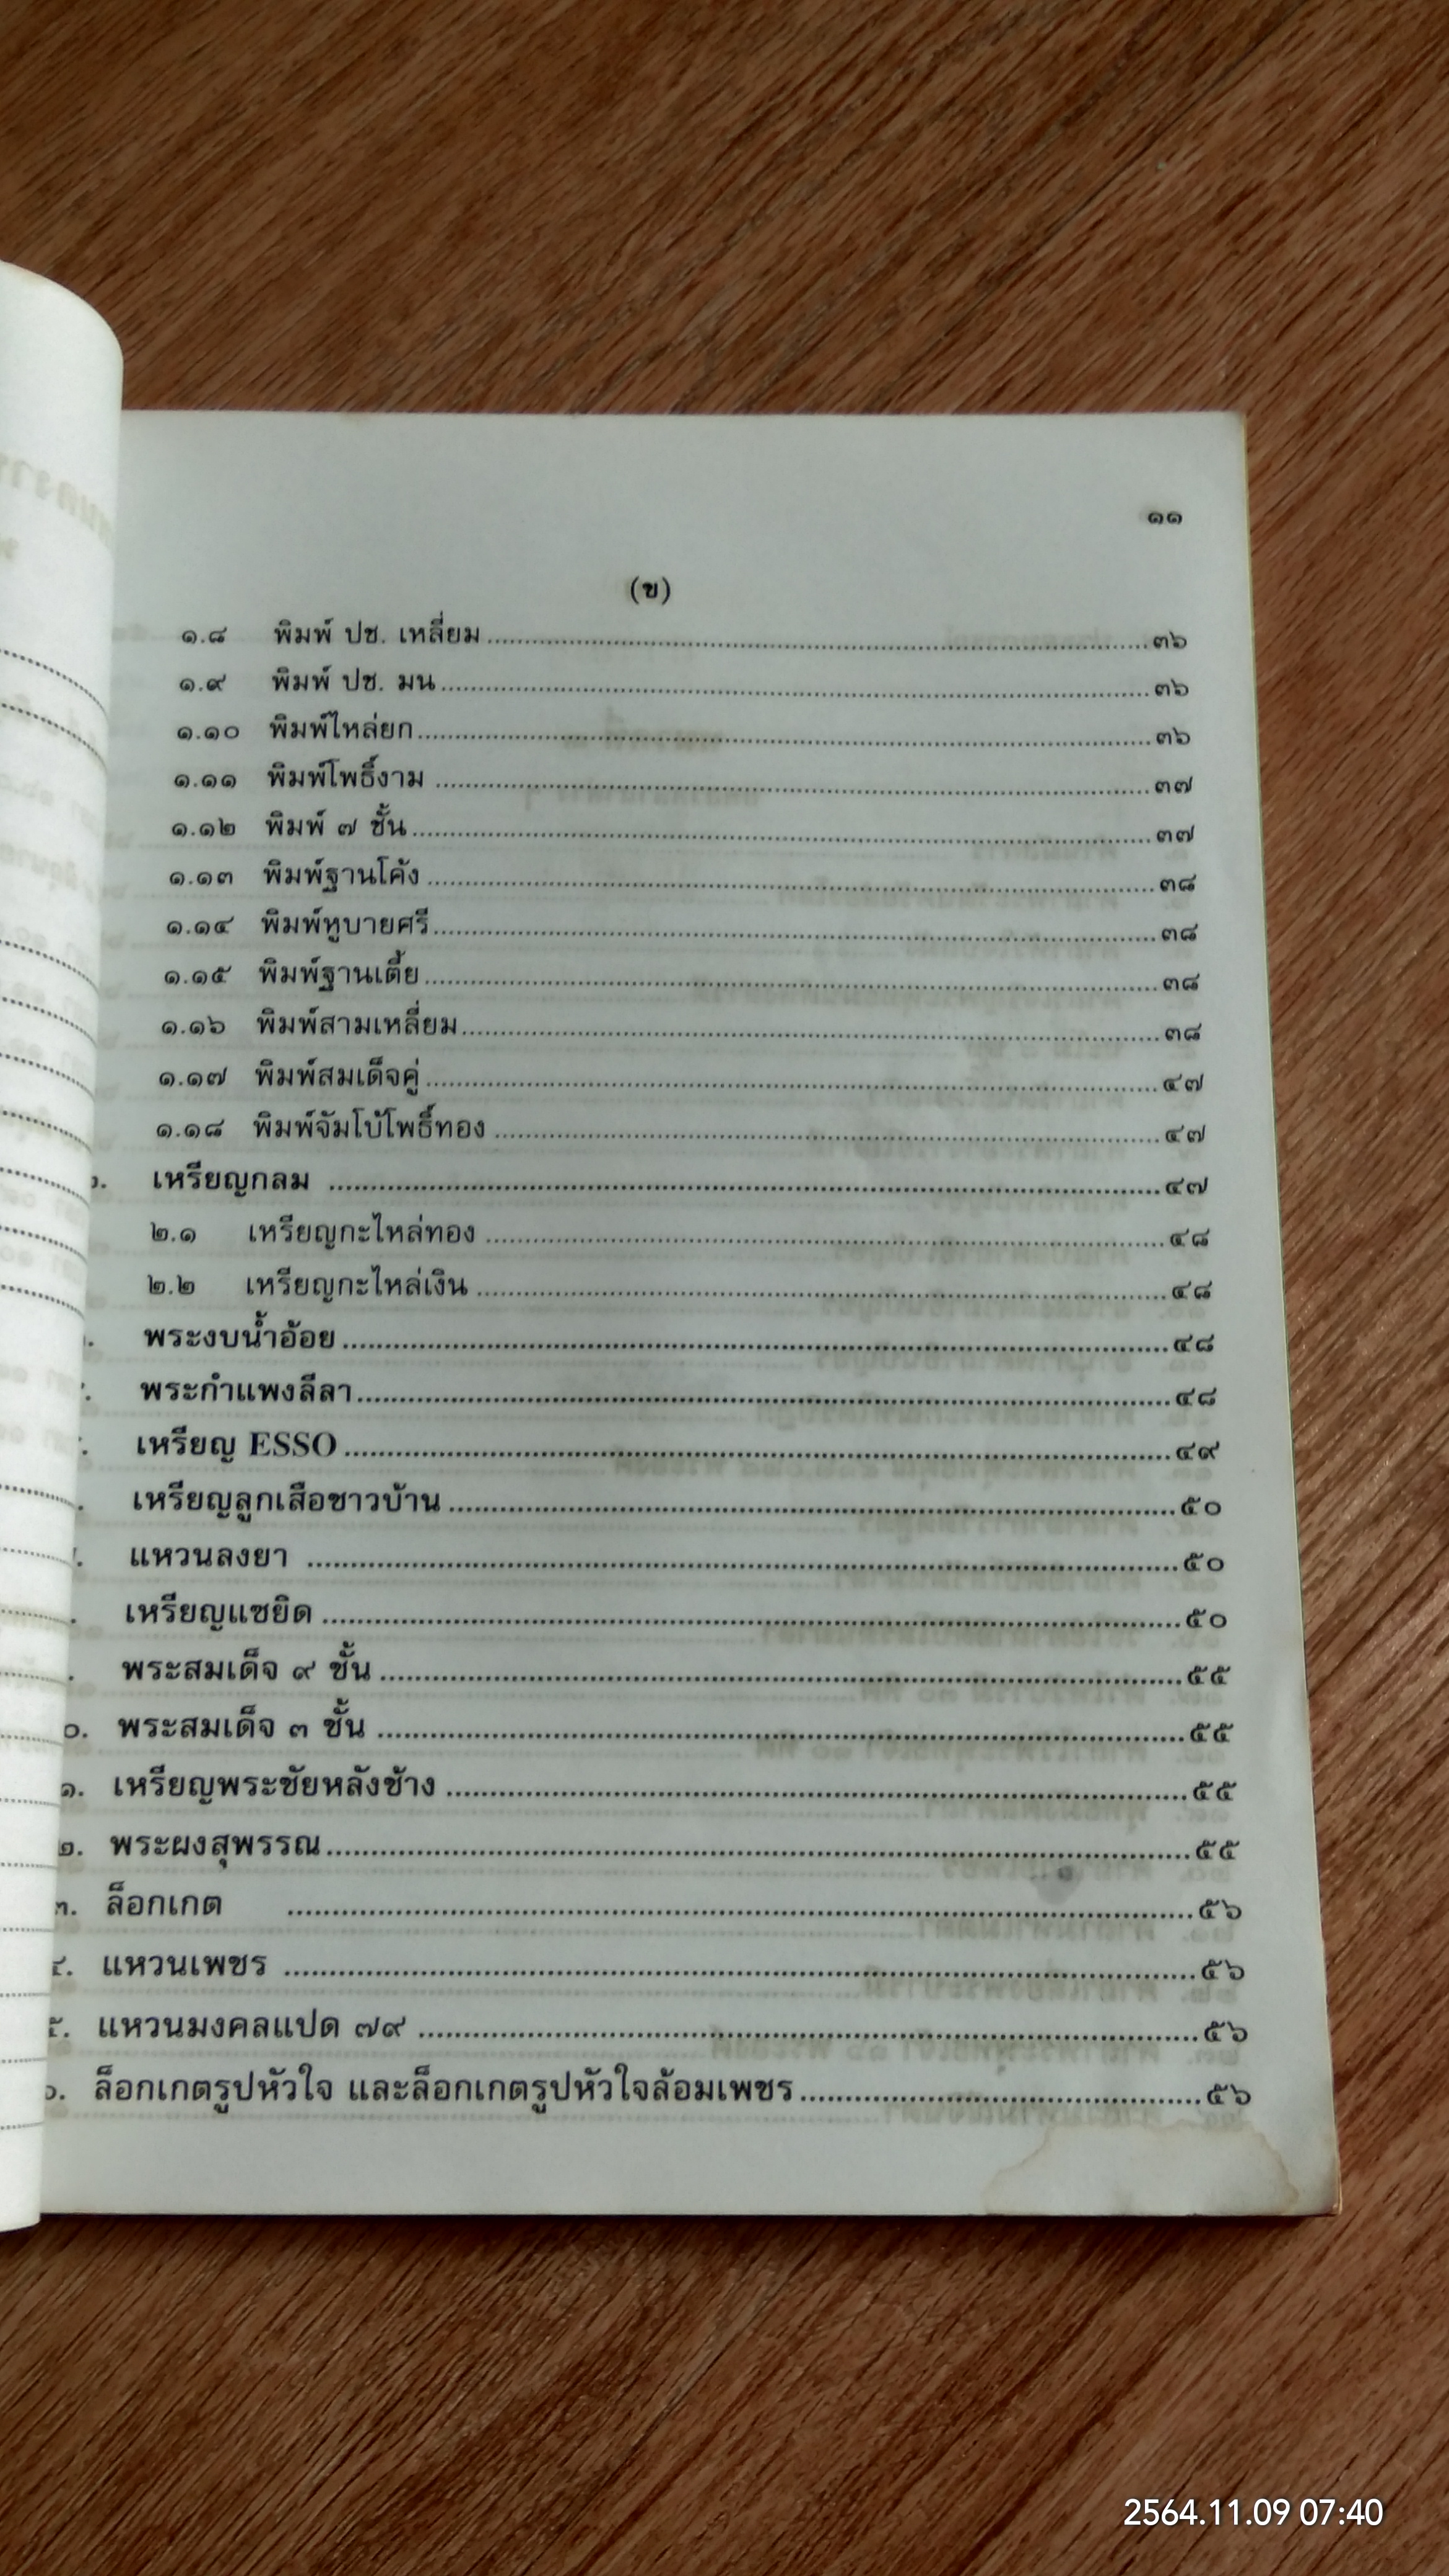 ๑๑
(ข)
๑.๘ พิมพ์ ปช. เหลี่ยม ๓๖
๑.๙ พิมพ์ ปช. มน ๓๖
๑.๑๐ พิมพ์ไหล่ยก ๓๖
๑.๑๑ พิมพ์โพธิ์งาม ๓๗
๑.๑๒ พิมพ์ ๗ ชั้น ๓๗
๑.๑๓ พิมพ์ฐานโค้ง ๓๘
๑.๑๔ พิมพ์หูบายศรี ๓๘
๑.๑๕ พิมพ์ฐานเตี้ย ๓๘
๑.๑๖ พิมพ์สามเหลี่ยม ๓๘
๑.๑๗ พิมพ์สมเด็จคู่ ๔๗
๑.๑๘ พิมพ์จัมโบ้โพธิ์ทอง ๔๗
เหรียญกลม ๔๗
๒.๑ เหรียญกะไหล่ทอง ๔๘
๒.๒ เหรียญกะไหล่เงิน ๔๘
พระงบน้ำอ้อย ๔๘
พระกำแพงลีลา ๔๘
เหรียญ ESSO ๔๙
เหรียญลูกเสือชาวบ้าน ๕๐
แหวนลงยา ๕๐
เหรียญแซยิด ๕๐
พระสมเด็จ ๙ ชั้น ๕๕
๐. พระสมเด็จ ๓ ชั้น ๕๕
๑. เหรียญพระชัยหลังช้าง ๕๕
๒. พระผงสุพรรณ ๕๕
๓. ล็อกเกต ๕๖
๔. แหวนเพชร ๕๖
๕. แหวนมงคลแปด ๗๙ ๕๖
ล็อกเกตรูปหัวใจ และล็อกเกตรูปหัวใจล้อมเพชร ๕๖
2564.11.09 07:40